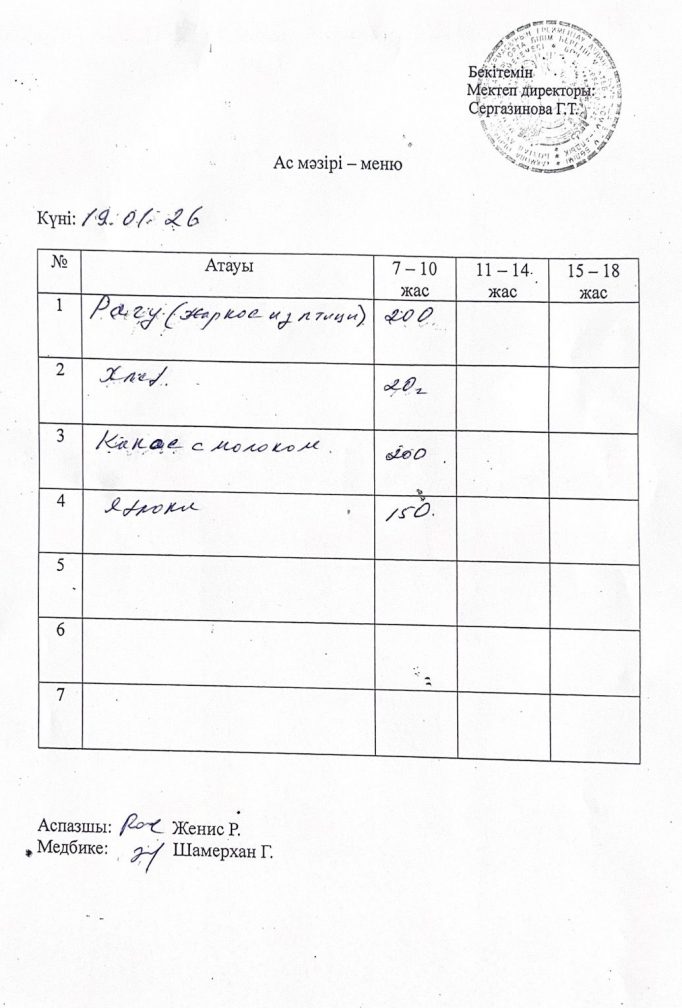 Бекітемін
Мектеп директоры:
Сергазинова Г.Т.
Ас мәзірі – меню
Күні: 19.01.26
№ Атауы 7 – 10 жас 11 – 14 жас 15 – 18 жас
1 Рагу (жаркое из птицы) 200
2 Хлеб. 20г
3 Какао с молоком. 200
4 Яблоки 150.
5
6
7
Аспазшы: Женис Р.
Медбике: Шамерхан Г.